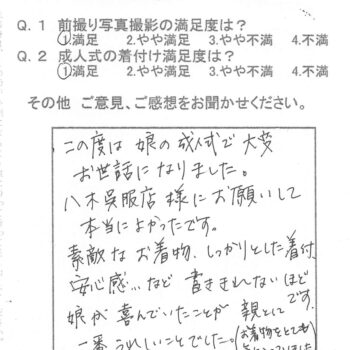 Q.1 前撮り写真撮影の満足度は？
①満足 2.やや満足 3.やや不満 4.不満
Q.2 成人式の着付け満足度は？
①満足 2.やや満足 3.やや不満 4.不満
その他 ご意見、ご感想をお聞かせください。
この度は 娘の 成人式で 大変
お世話に なりました。
八木呉服店 様に お願いして
本当に よかったです。
素敵な お着物、しっかりとした着付
安心感…など 書ききれないほど
です。
娘が 喜んでいたことが 親として
一番うれしいことでした。
(お着物をとても